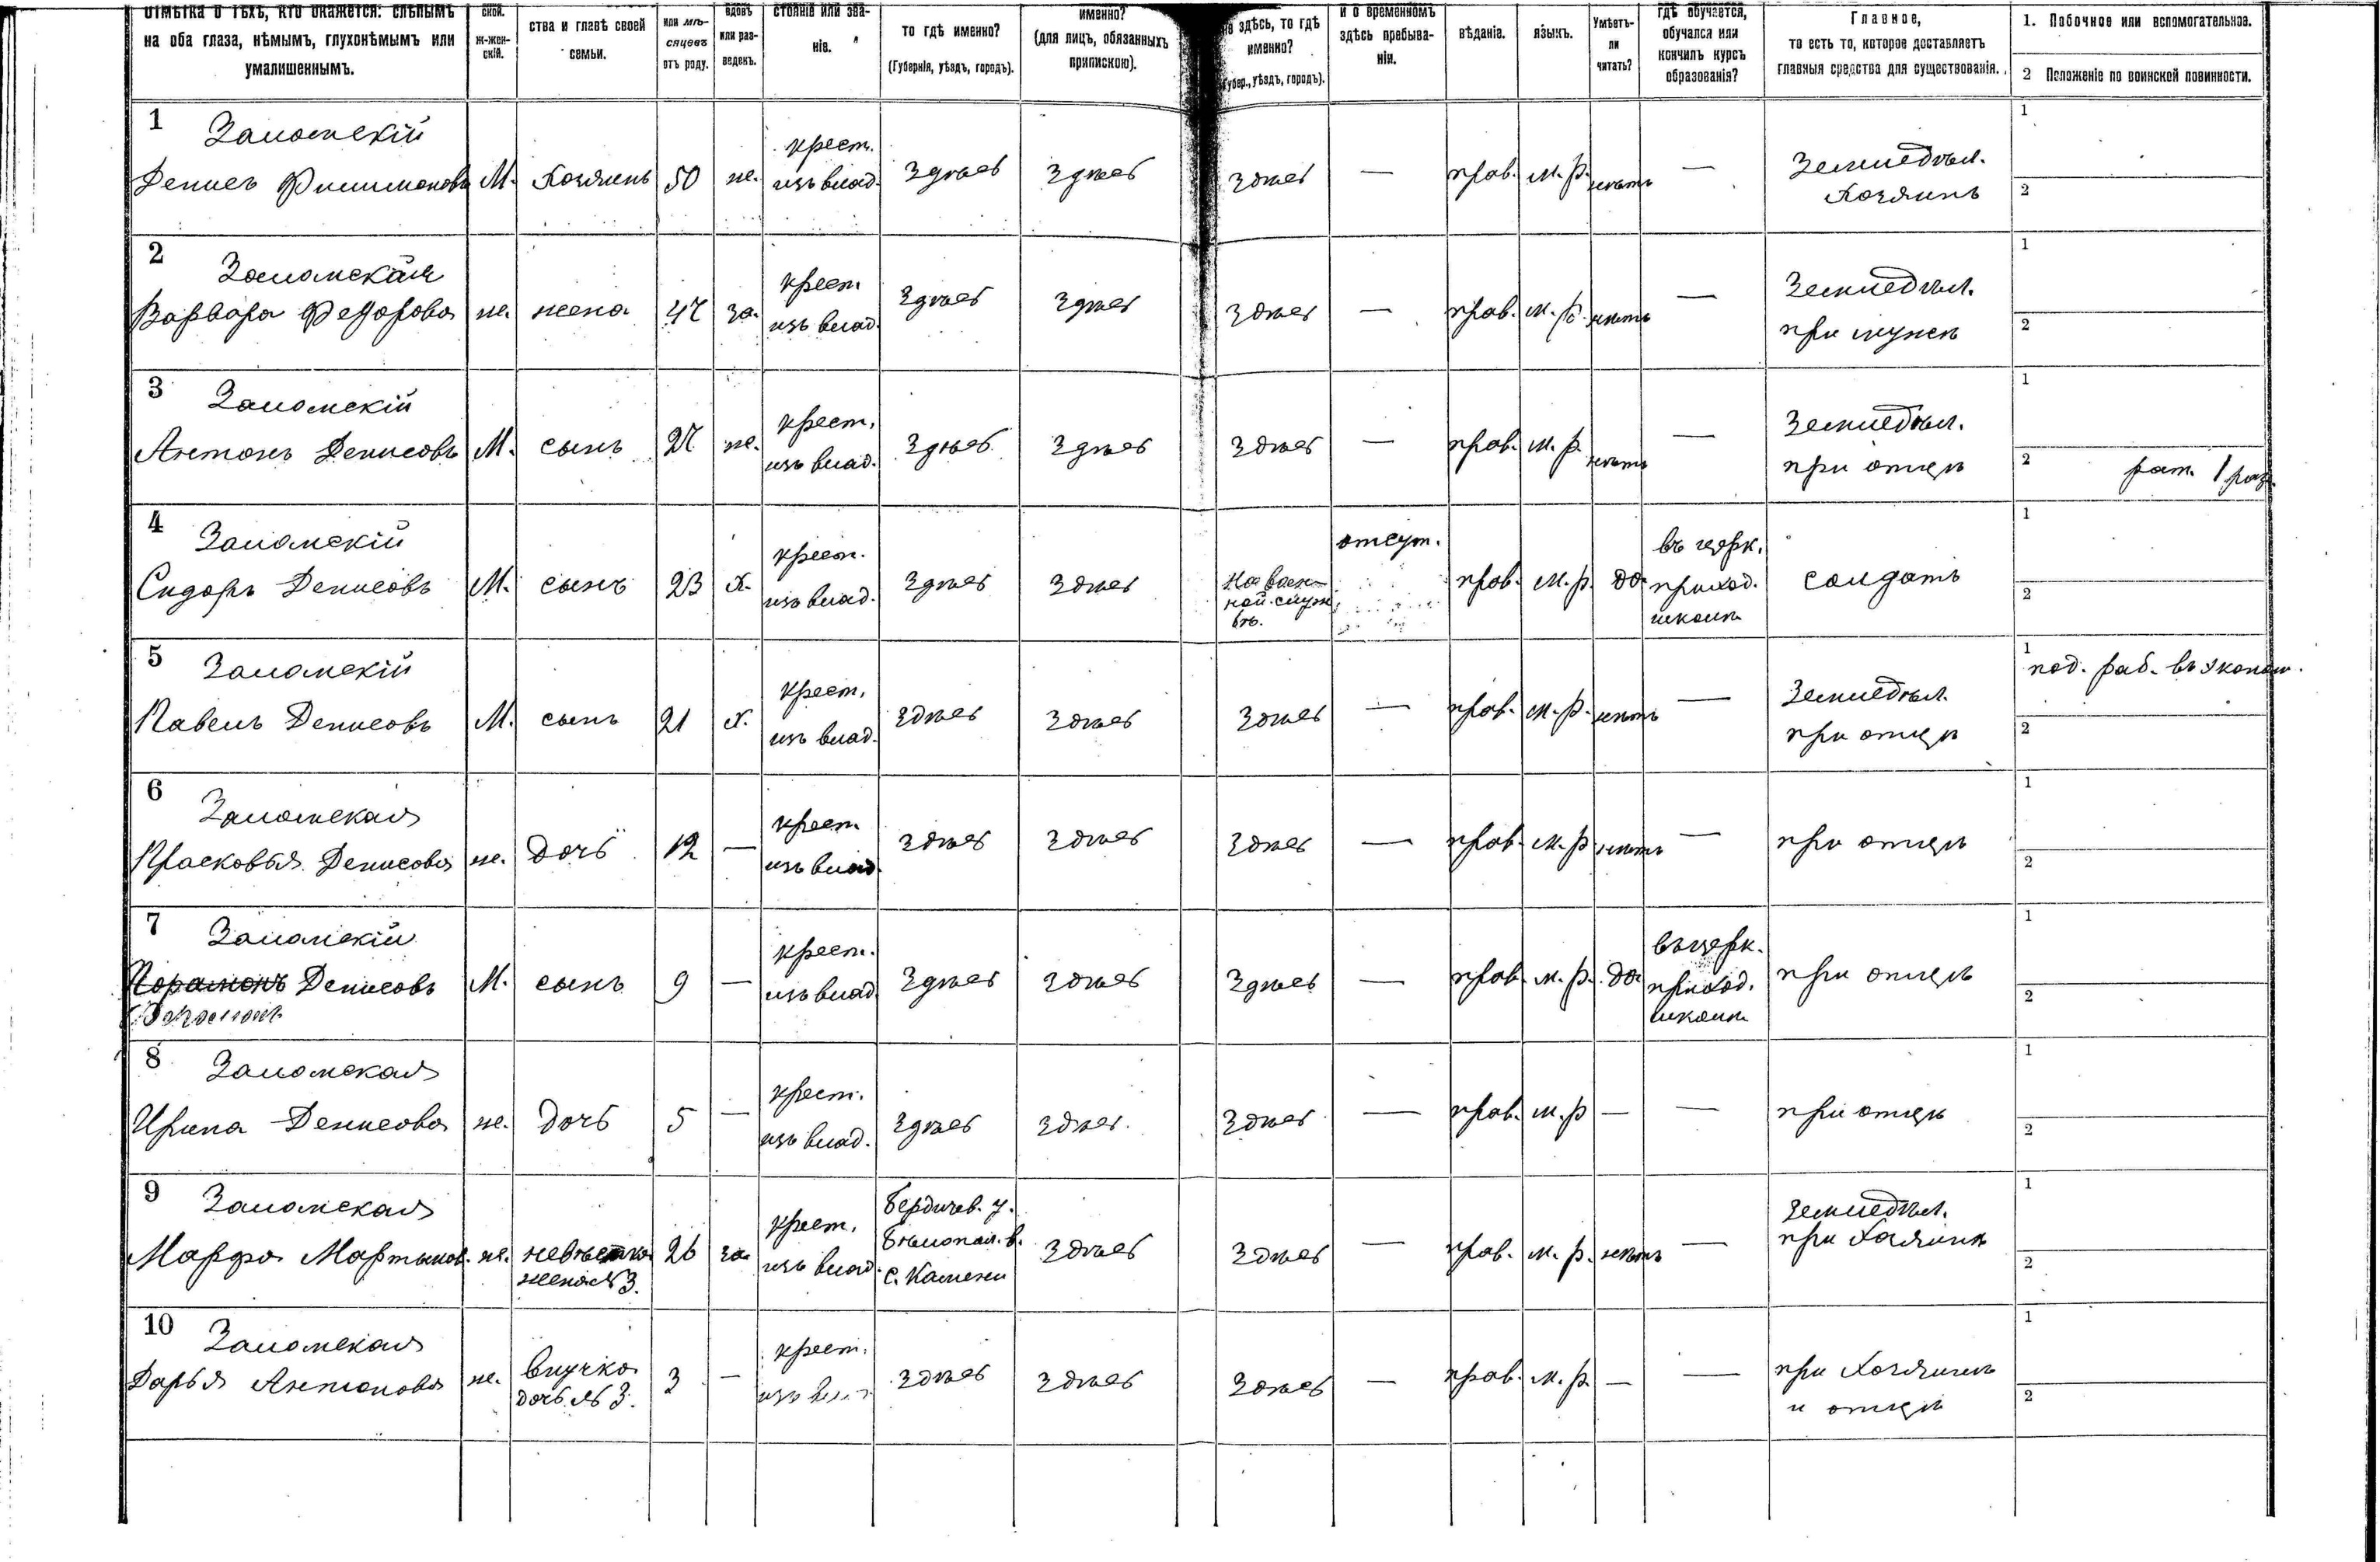 Отмѣтка о тѣхъ, кто окажется: слѣпымъ на оба глаза, нѣмымъ, глухонѣмымъ или умалишеннымъ.
ской.
ж-жен-скій.
ства и главѣ своей семьи.
или мѣсяцевъ отъ роду.
вдовъ или раз-веденъ.
стояніе или зва-ніе.
то гдѣ именно?
(Губернія, уѣздъ, городъ).
именно?
(для лицъ, обязанныхъ припискою).
здѣсь, то гдѣ именно?
(Губер., уѣздъ, городъ).
и о временномъ здѣсь пребыва-ніи.
вѣданіе.
языкъ.
Умѣетъ-ли читать?
гдѣ обучается, обучался или кончилъ курсъ образованія?
Главное,
то есть то, которое доставляетъ главныя средства для существованія.
1. Побочное или вспомогательное.
2 Положеніе по воинской повинности.
1 Заломскій
Денисъ Филимоновъ М. Хозяинъ 50 же. крест. изъ влад. Здѣсь Здѣсь Здѣсь — прав. м. р. нѣтъ — Земледѣл. Хозяинъ 1 2
2 Заломская
Варвара Федорова же. жена 47 за. крест. изъ влад. Здѣсь Здѣсь Здѣсь — прав. м. р. нѣтъ — Земледѣл. при мужѣ 1 2
3 Заломскій
Антонъ Денисовъ М. сынъ 27 же. крест. изъ влад. Здѣсь Здѣсь Здѣсь — прав. м. р. нѣтъ — Земледѣл. при отцѣ 1 2 рат. 1 раз.
4 Заломскій
Сидоръ Денисовъ М. сынъ 23 х. крест. изъ влад. Здѣсь Здѣсь На воен-ной служ-бѣ. отсут. прав. м. р. да въ церк. приход. школѣ солдатъ 1 2
5 Заломскій
Павелъ Денисовъ М. сынъ 21 х. крест. изъ влад. Здѣсь Здѣсь Здѣсь — прав. м. р. нѣтъ — Земледѣл. при отцѣ 1 под. раб. въ эконом. 2
6 Заломская
Прасковья Денисова же. дочь 12 — крест. изъ влад. Здѣсь Здѣсь Здѣсь — прав. м. р. нѣтъ — при отцѣ 1 2
7 Заломскій
Парамонъ Денисовъ М. сынъ 9 — крест. изъ влад. Здѣсь Здѣсь Здѣсь — прав. м. р. да въ церк. приход. школѣ при отцѣ 1 2
8 Заломская
Ирина Денисова же. дочь 5 — крест. изъ влад. Здѣсь Здѣсь. Здѣсь — прав. м. р — — при отцѣ 1 2
9 Заломская
Марфа Мартынов. же. невѣстка жена №3. 26 за крест. изъ влад. Бердичев. у. Бѣлопол. в. с. Камени Здѣсь Здѣсь — прав. м. р. нѣтъ — Земледѣл. при Хозяинѣ 1 2
10 Заломская
Дарья Антонова же. внучка дочь №3. 3 — крест. изъ влад. Здѣсь Здѣсь Здѣсь — прав. м. р. — — при Хозяинѣ и отцѣ 1 2